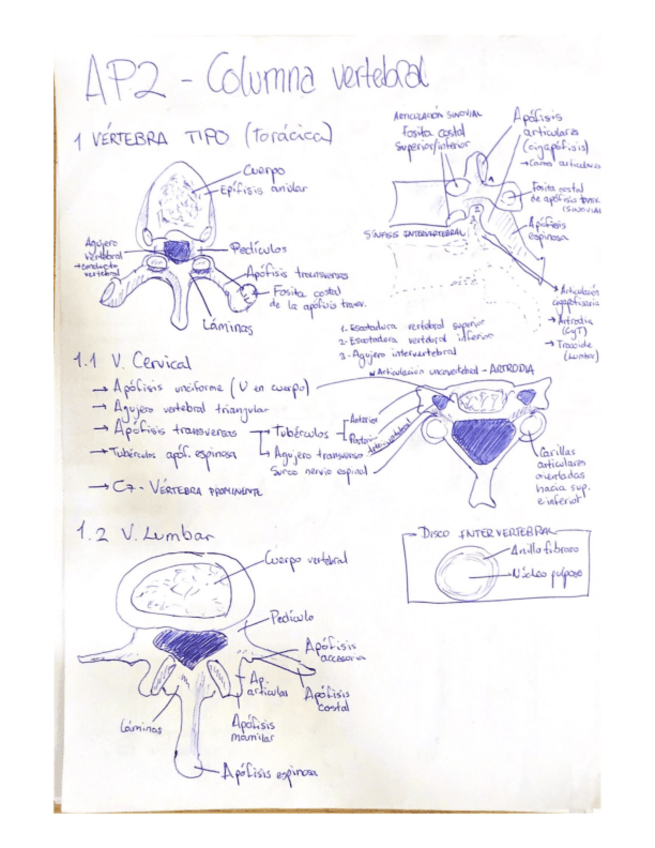 AP2 - Columna vertebral
1 VÉRTEBRA TIPO (torácica)
Cuerpo
Epífisis anular
Agujero
vertebral
→ conducto
vertebral
Pedículos
Apófisis transversas
Fosita costal
de la apófisis transv.
Láminas
ARTICULACIÓN SINOVIAL
fosita costal
superior/inferior
Apófisis
articulares
(cigapófisis)
→ Caras articulares
Fosita costal
de apófisis transv.
(SINOVIAL)
Apófisis
espinosa
SÍNFISIS INTERVERTEBRAL
→ Articulación
cigapofisaria
→ Artrodia
(C y T)
→ Trocoide
(Lumbar)
1- Escotadura vertebral superior
2- Escotadura vertebral inferior
3- Agujero intervertebral
1.1 V. Cervical
→ Apófisis unciforme (U en cuerpo)
Articulación uncovertebral - ARTRODIA
→ Agujero vertebral triangular
→ Apófisis transversas → Tubérculos
Anterior
Posterior
→ Agujero transverso
Surco nervio espinal
→ Tubérculos apóf. espinosa
→ C7 - VÉRTEBRA PROMINENTE
Carillas
articulares
orientadas
hacia sup.
e inferior
1.2 V. Lumbar
Cuerpo vertebral
Pedículo
Apófisis
accesoria
Ap.
articulas
Apófisis
costal
Láminas
Apófisis
mamilar
Apófisis espinosa
DISCO INTERVERTEBRAL
Anillo fibroso
Núcleo pulposo